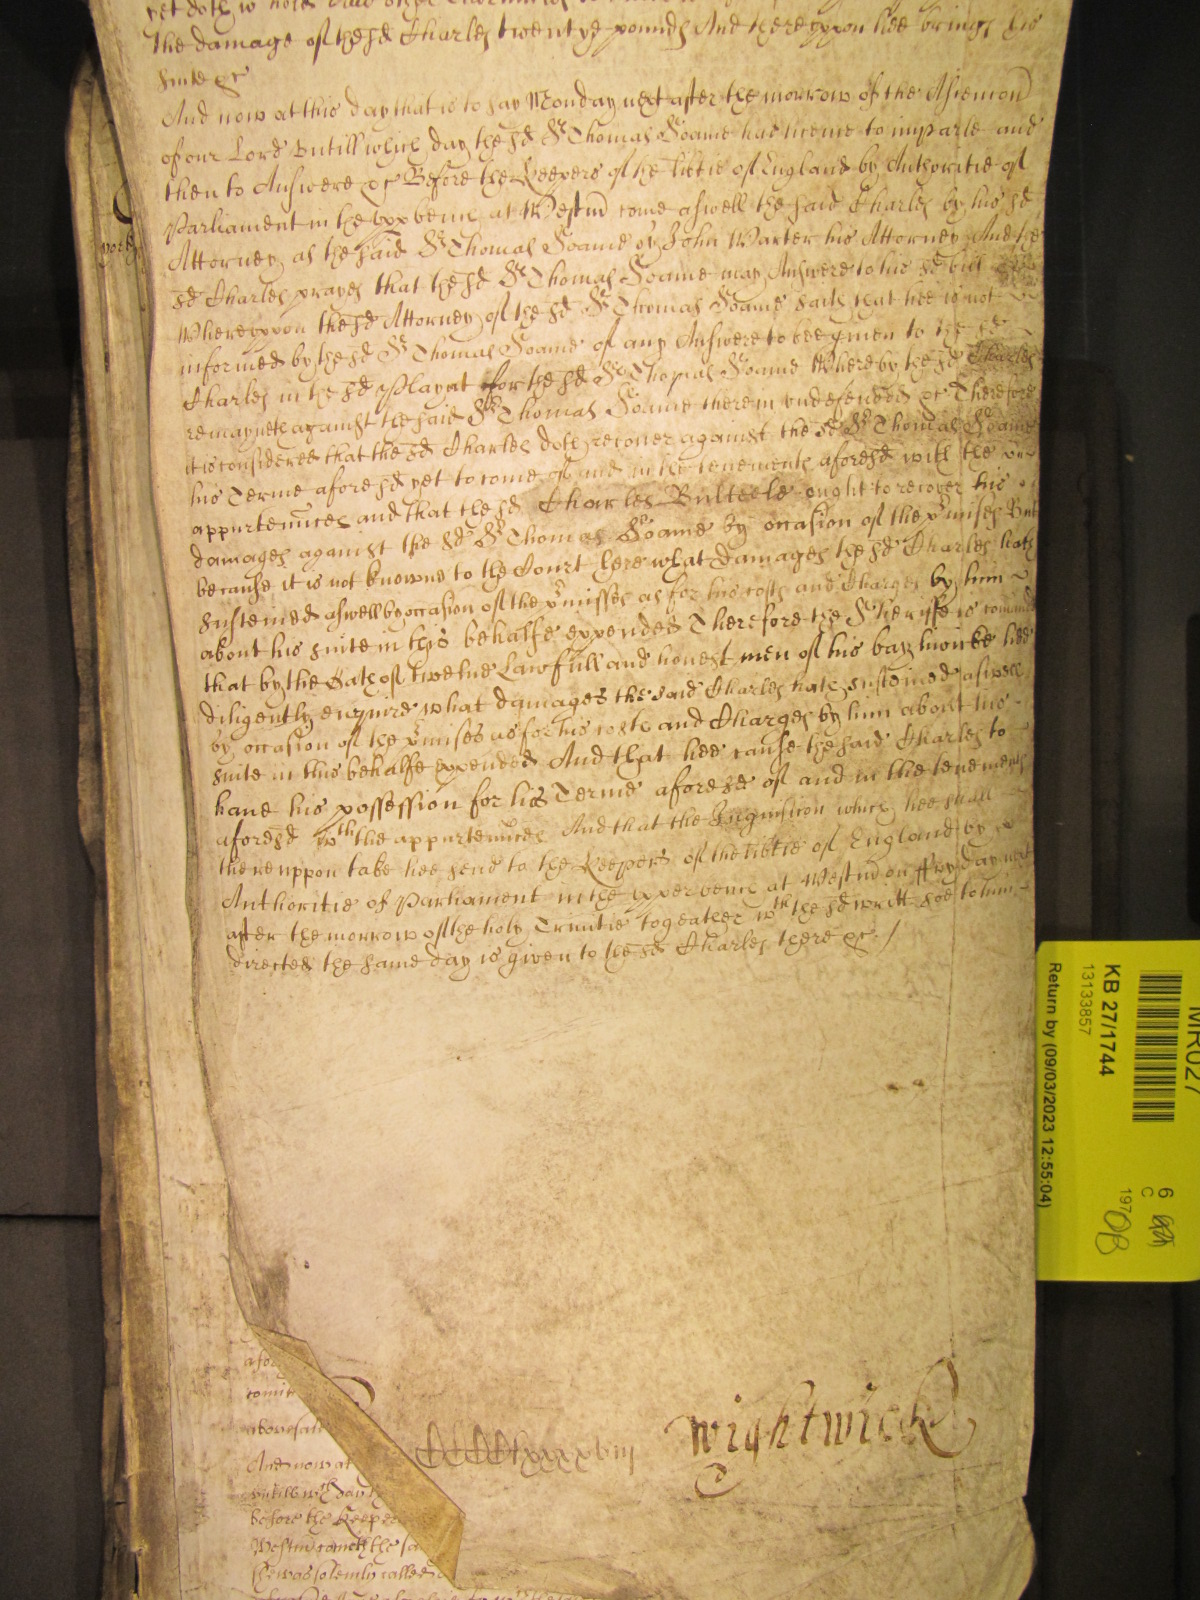 yet doth w hold And other
the damage of the sd Charles twentye pounds And thereuppon hee brings his
suite &c
And now at this day that is to say Monday next after the morrow of the Asscention
of our Lord untill which day the sd Sr Thomas Soame had licence to imparle and
then to Answere &c Before the Keepers of the libtie of England by Authoritie of
Parliament in the upp bench at Westm come aswell the said Charles by his sd
Attorney as the said Sr Thomas Soame by John Warter his Attorney And the
sd Charles prayes that the sd Sr Thomas Soame may Answere to his sd bill
Whereuppon the sd Attorney of the sd Sr Thomas Soame saith that hee is not
informed by the sd Sr Thomas Soame of any Answere to bee given to the sd
Charles in the sd Playnt for the sd Sr Thomas Soame Whereby the sd Charles
remayneth against the said Sr Thomas Soame therein undefended &c Therefore
it is considered that the sd Charles doth recover against the sd Sr Thomas Soame
his Terme aforesd yet to come of and in the tenements aforesd with the
appurtennces and that the sd Charles Bulteele ought to recover his
damages against the sd Sr Thomas Soame by occasion of the pmises But
because it is not knowne to the Court here what damages the sd Charles hath
susteined aswell by occasion of the pmisses as for his costs and Charges by him
about his suite in this behalfe expended Therefore the Sheriffe is commanded
that by the Oath of twelve Lawfull and honest men of his bayliwicke hee
diligently enquire what damages the said Charles hath susteined aswell
by occasion of the pmises as for his costs and Charges by him about his
suite in this behalfe expended And that hee cause the said Charles to
have his possession for his Terme aforesd of and in the tenements
aforesd wth the appurtennces And that the Inquisicon which hee shall
thereuppon take hee send to the Keepers of the libtie of England by
Authoritie of Parliament in the upper bench at Westm on ffryday next
after the morrow of the holy Trinitie togeather wth the sd writt soe to him
directed the same day is given to the sd Charles there &c /
yorke
MR027
KB 27/1744
13133857
6
C
197
Return by (09/03/2023 12:55:04)
Wightwick
CCCClxxxxviii
afor
comit
abovesaid
And now at
untill wch day
before the Keepe
Westm cometh the sa
he was solemly called